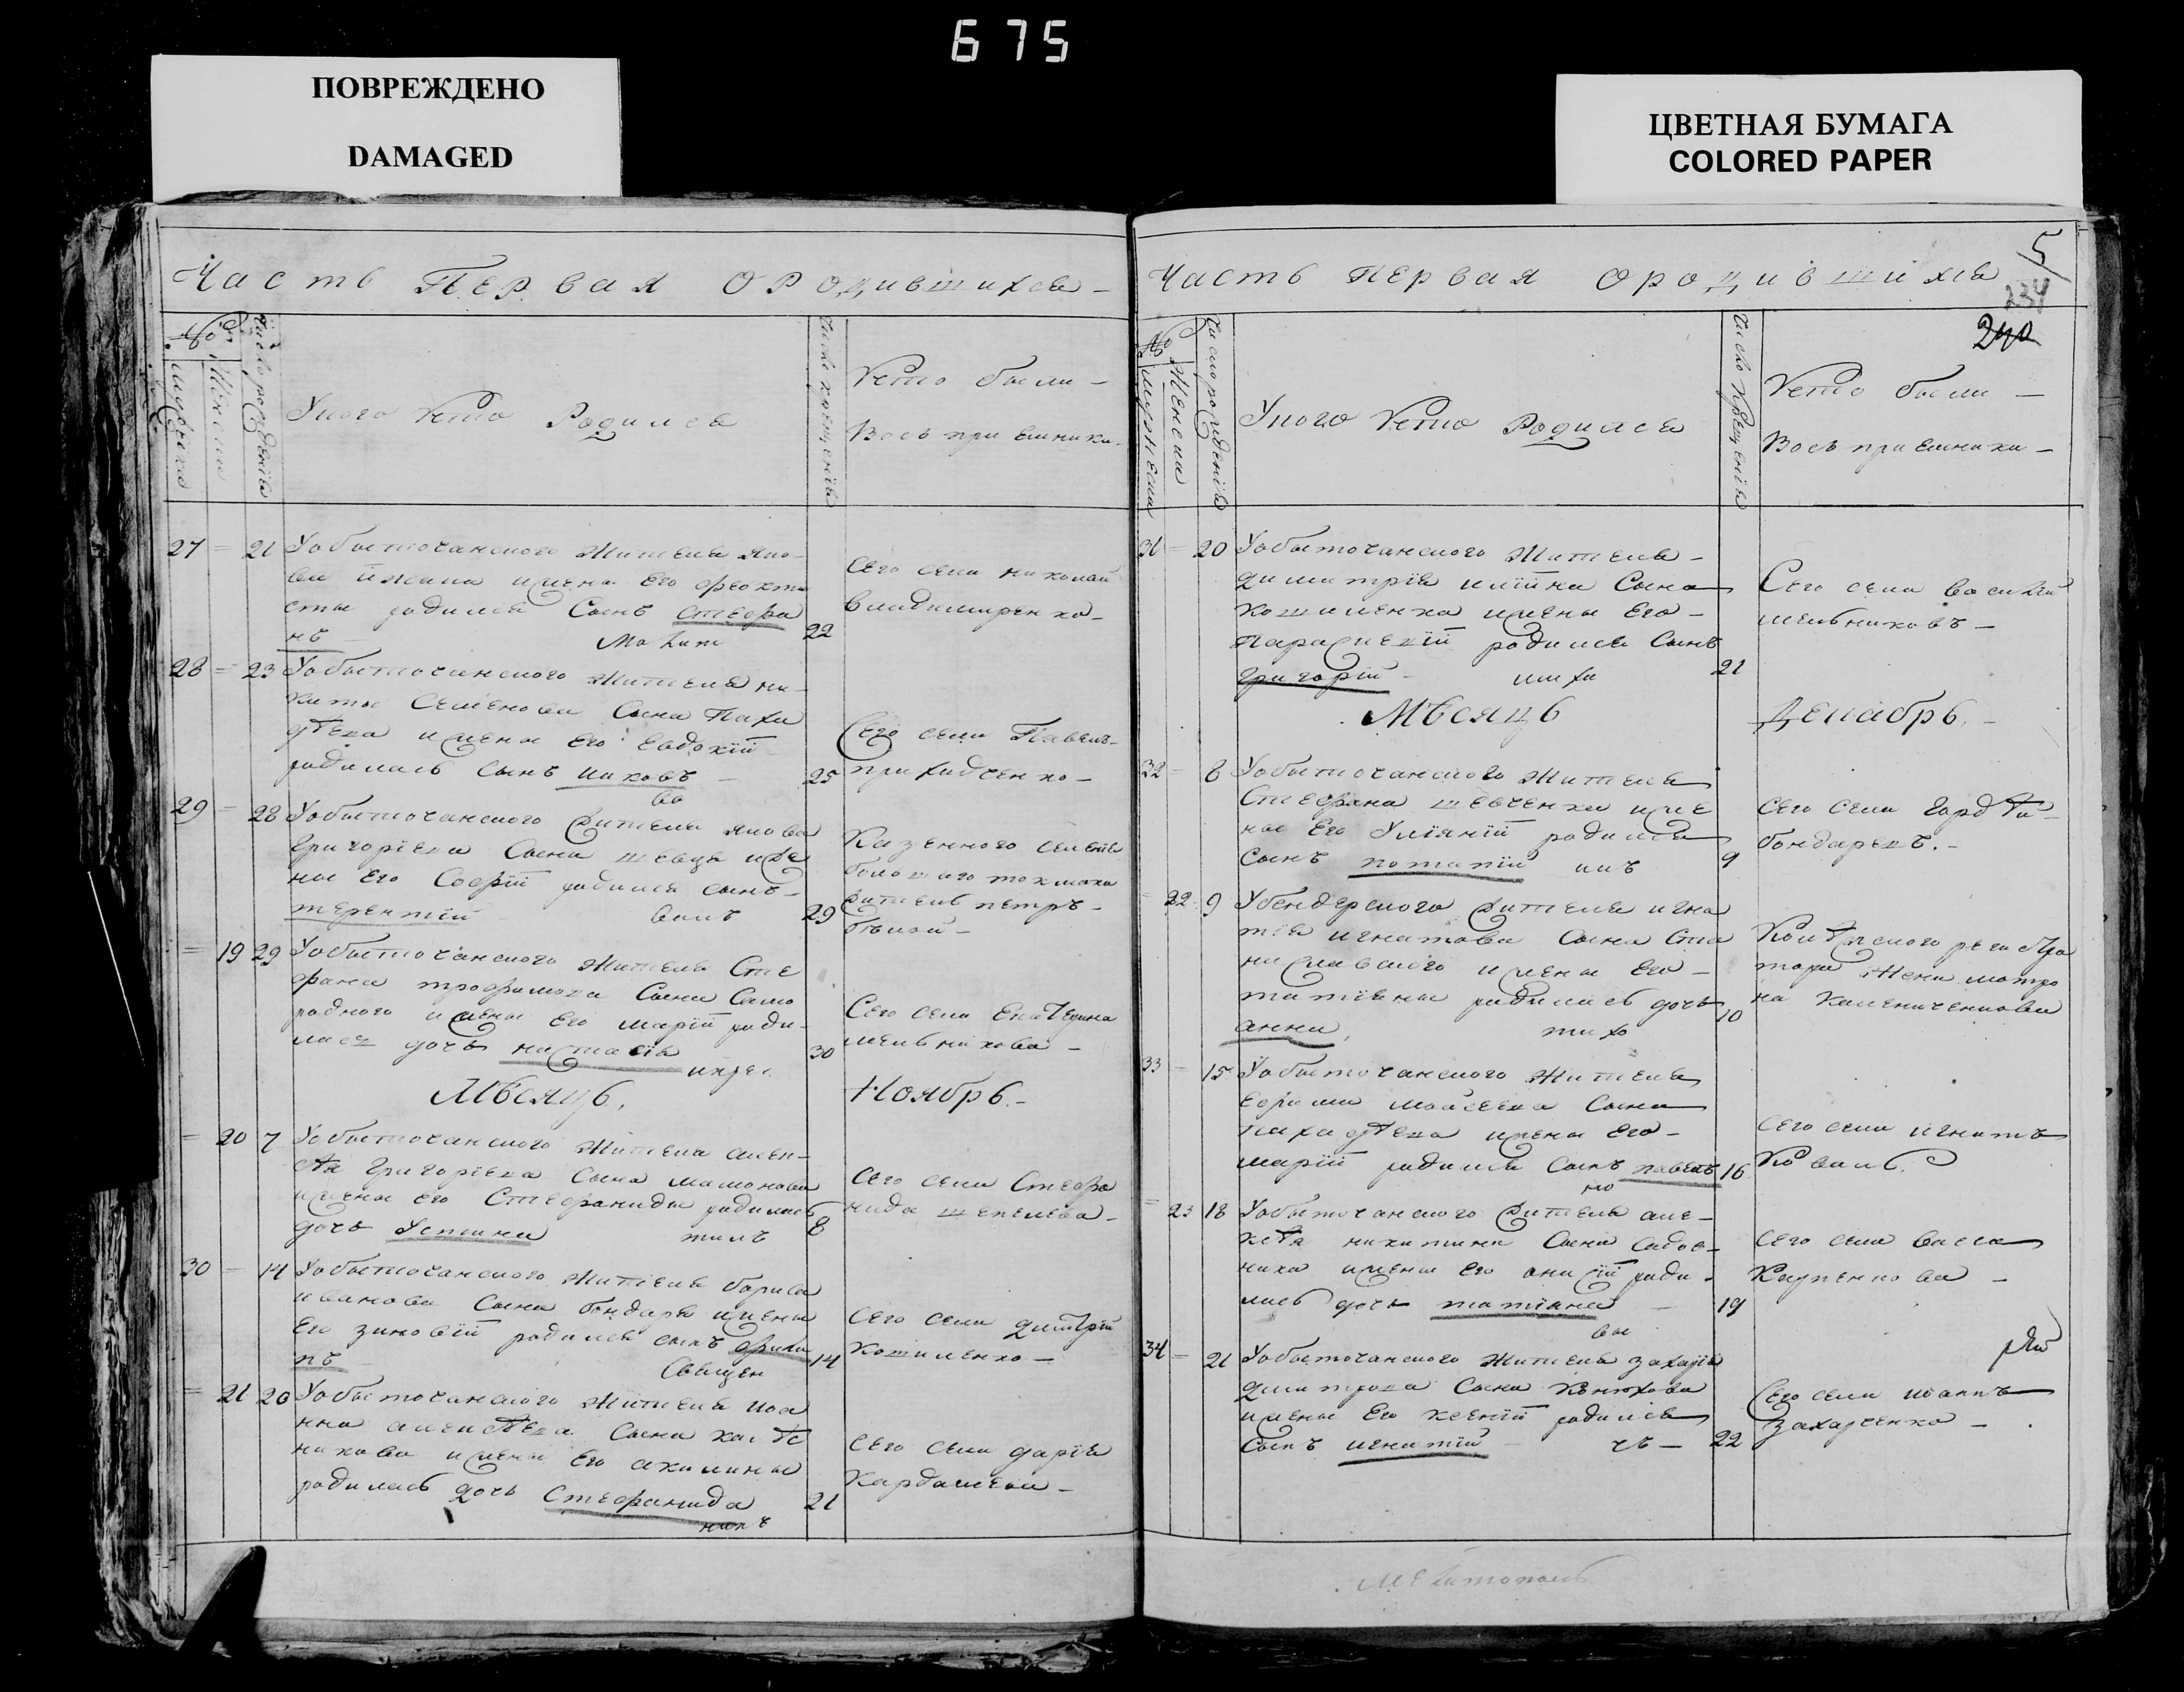 675
ПОВРЕЖДЕНО
DAMAGED
ЦВЕТНАЯ БУМАГА
COLORED PAPER
Часть Первая о Родившихся
№
мужеска
женска
Число рожденія
У кого кто Родился
Число крещенія
Кто были
Восъприемники
27 21 У обыточанского жителя Яко-
ва жены его Феокти
сты родился сынъ Стефа
нъ 22
Сего села Николай
Владимиренко
28 23 У обыточанского жителя Ни-
киты Семенова сына
жены его Евдокіи
родилась сынъ Иаковъ 25
ва
Сего села Павелъ
29 28 У обыточанского жителя Якова
Григоріева сына Шевца и же
ны его Софіи родился сынъ
Терентій 29
Казенного селенія
болшаго токмака
житель петръ
19 29 У обыточанского жителя Сте
фана трофимова сына Само
родного и жены его маріи роди
лася дочь настасія 30
Сего села Екатерина
мельникова
Мѣсяцъ Ноябрь
20 7 У обыточанского жителя алек-
сѣя Григоріева сына мамонова
и жены его Стефаниды родилась
дочь Устина 8
Сего села Стефа
нида шепелева
30 14 У обыточанского жителя бориса
иванова сына бондаря и жены
его зиновіи родился сынъ фили
пъ 14
Сего села димитрій
Кошиленко
21 20 У обыточанского жителя иоа
нна алексѣева сына
никова и жены его акилины
родилась дочь Стефанида 21
Сего села дарія
Кардашева
Часть Первая о родившихся
5
234
240
№
мужеска
женска
Число рожденія
У кого кто Родился
Число крещенія
Кто были
Восъприемники
31 20 У обыточанского жителя
димитрія иліина сына
кошиленка и жены его
Параскевіи родился сынъ
григорій 21
Сего села василій
мельниковъ
Мѣсяцъ Декабрь
32 8 У обыточанского жителя
Стефана шевченка и же
ны его Уліяніи родился
сынъ потапій 9
Сего села Гордѣй
бондарецъ
22 9 У бендерского жителя игна
тія игнатова сына Ста
ниславского и жены его
татіяны родилась дочь
анна 10
регистра
тора жена матро
на
33 15 У обыточанского жителя
ефима моисеева сына
и жены его
маріи родился сынъ павелъ 16
Сего села игнатъ
Коваль
23 18 У обыточанского жителя але-
ксѣя никитина сына садов-
ника и жены его анисіи роди-
лась дочь татіяна 19
Сего села васса
Карпенкова
34 21 У обыточанского жителя захарія
дмитрова сына Конюхова
и жены его ксеніи родился
сынъ игнатій 22
Сего села иоаннъ
Захарченко
Мелитополь